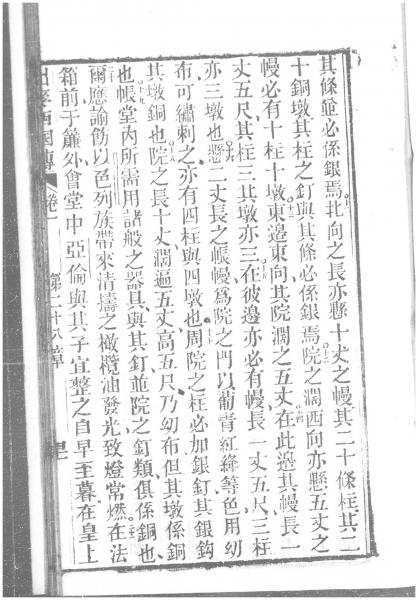 其條並必係銀焉北向之長亦懸十丈之幔其二十條柱其二
十銅墩其柱之釘與其條必係銀焉院之濶西向亦懸五丈之
幔必有十柱十墩東邊東向其院濶之五丈在此邊其幔長一
丈五尺其柱三其墩亦三在彼邊亦必有幔長一丈五尺三柱
亦三墩也懸二丈長之帳幔為院之門以葡青紅絳等色用幼
布可繡刺之亦有四柱與四墩也周院之柱必加銀釘其銀鈎
其墩銅也院之長十丈濶遍五丈高五尺乃幼布但其墩係銅
也帳堂內所需用諸般之器具與其釘並院之釘類俱係銅也
爾應諭飭以色列族帶來清擣之橄欖油發光致燈常燃在法
箱前于簾外會堂中亞倫與其子宜整之自早至暮在皇上
出麥西國傳 卷一 第二十八章